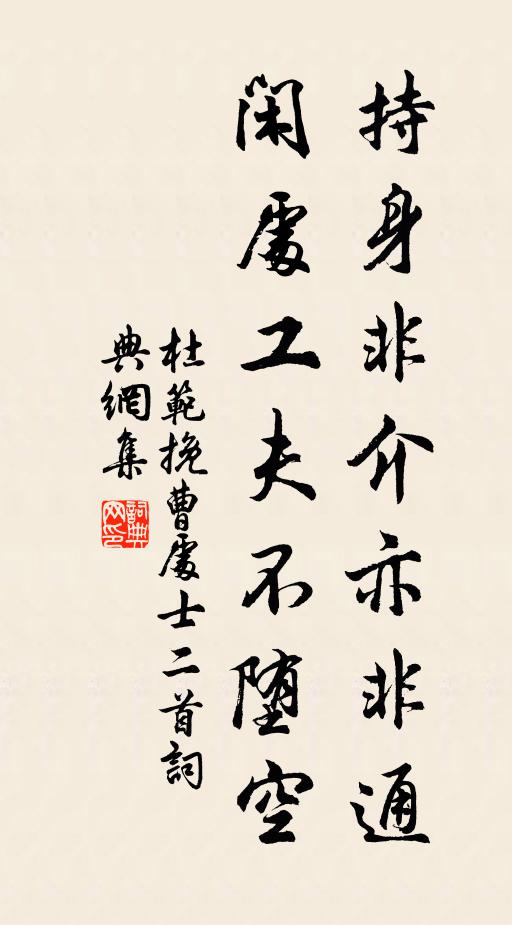 持身非介亦非通
閑處工夫不墮空
杜範挽曹處士二首詞
典網集
詞典
网印